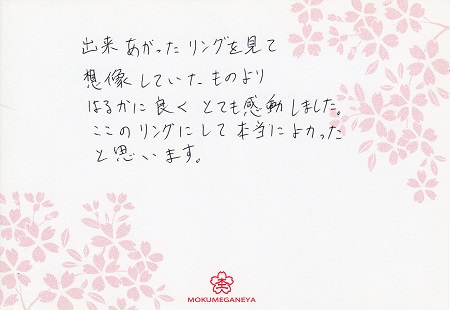 出来あがったリングを見て
想像していたものより
はるかに良くとても感動しました。
ここのリングにして本当によかった
と思います。
MOKUMEGANEYA